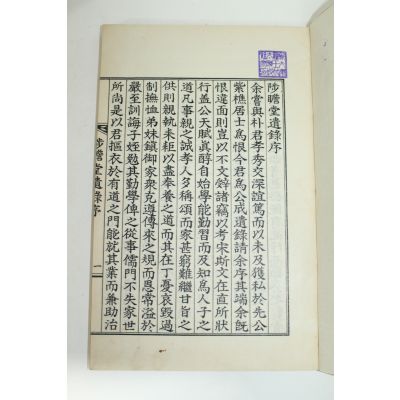 陟瞻堂遺錄序
余嘗與朴君孝秀交深誼篤而以未及獲私於先公
紫樵居士爲恨今君爲公成遺錄請余序其端余旣
恨違面則豈以不文辭諸竊以考宋斯文在直所狀
行盖公天賦眞醇自始學能勤習而及知爲人子之
道凡事親之誠孝人多稱頌而家甚窮難繼甘旨之
供則親執耒耟以盡奉養之道而其在丁憂哀毁過
制撫恤弟妹鎭御家衆克遵傳來之規而恩常溢於
嚴至訓誨子姪勉其勤學俾之從事儒門不失家世
所尚是以君摳衣於有道之門能就其業而兼助治
陟瞻堂遺錄序
一